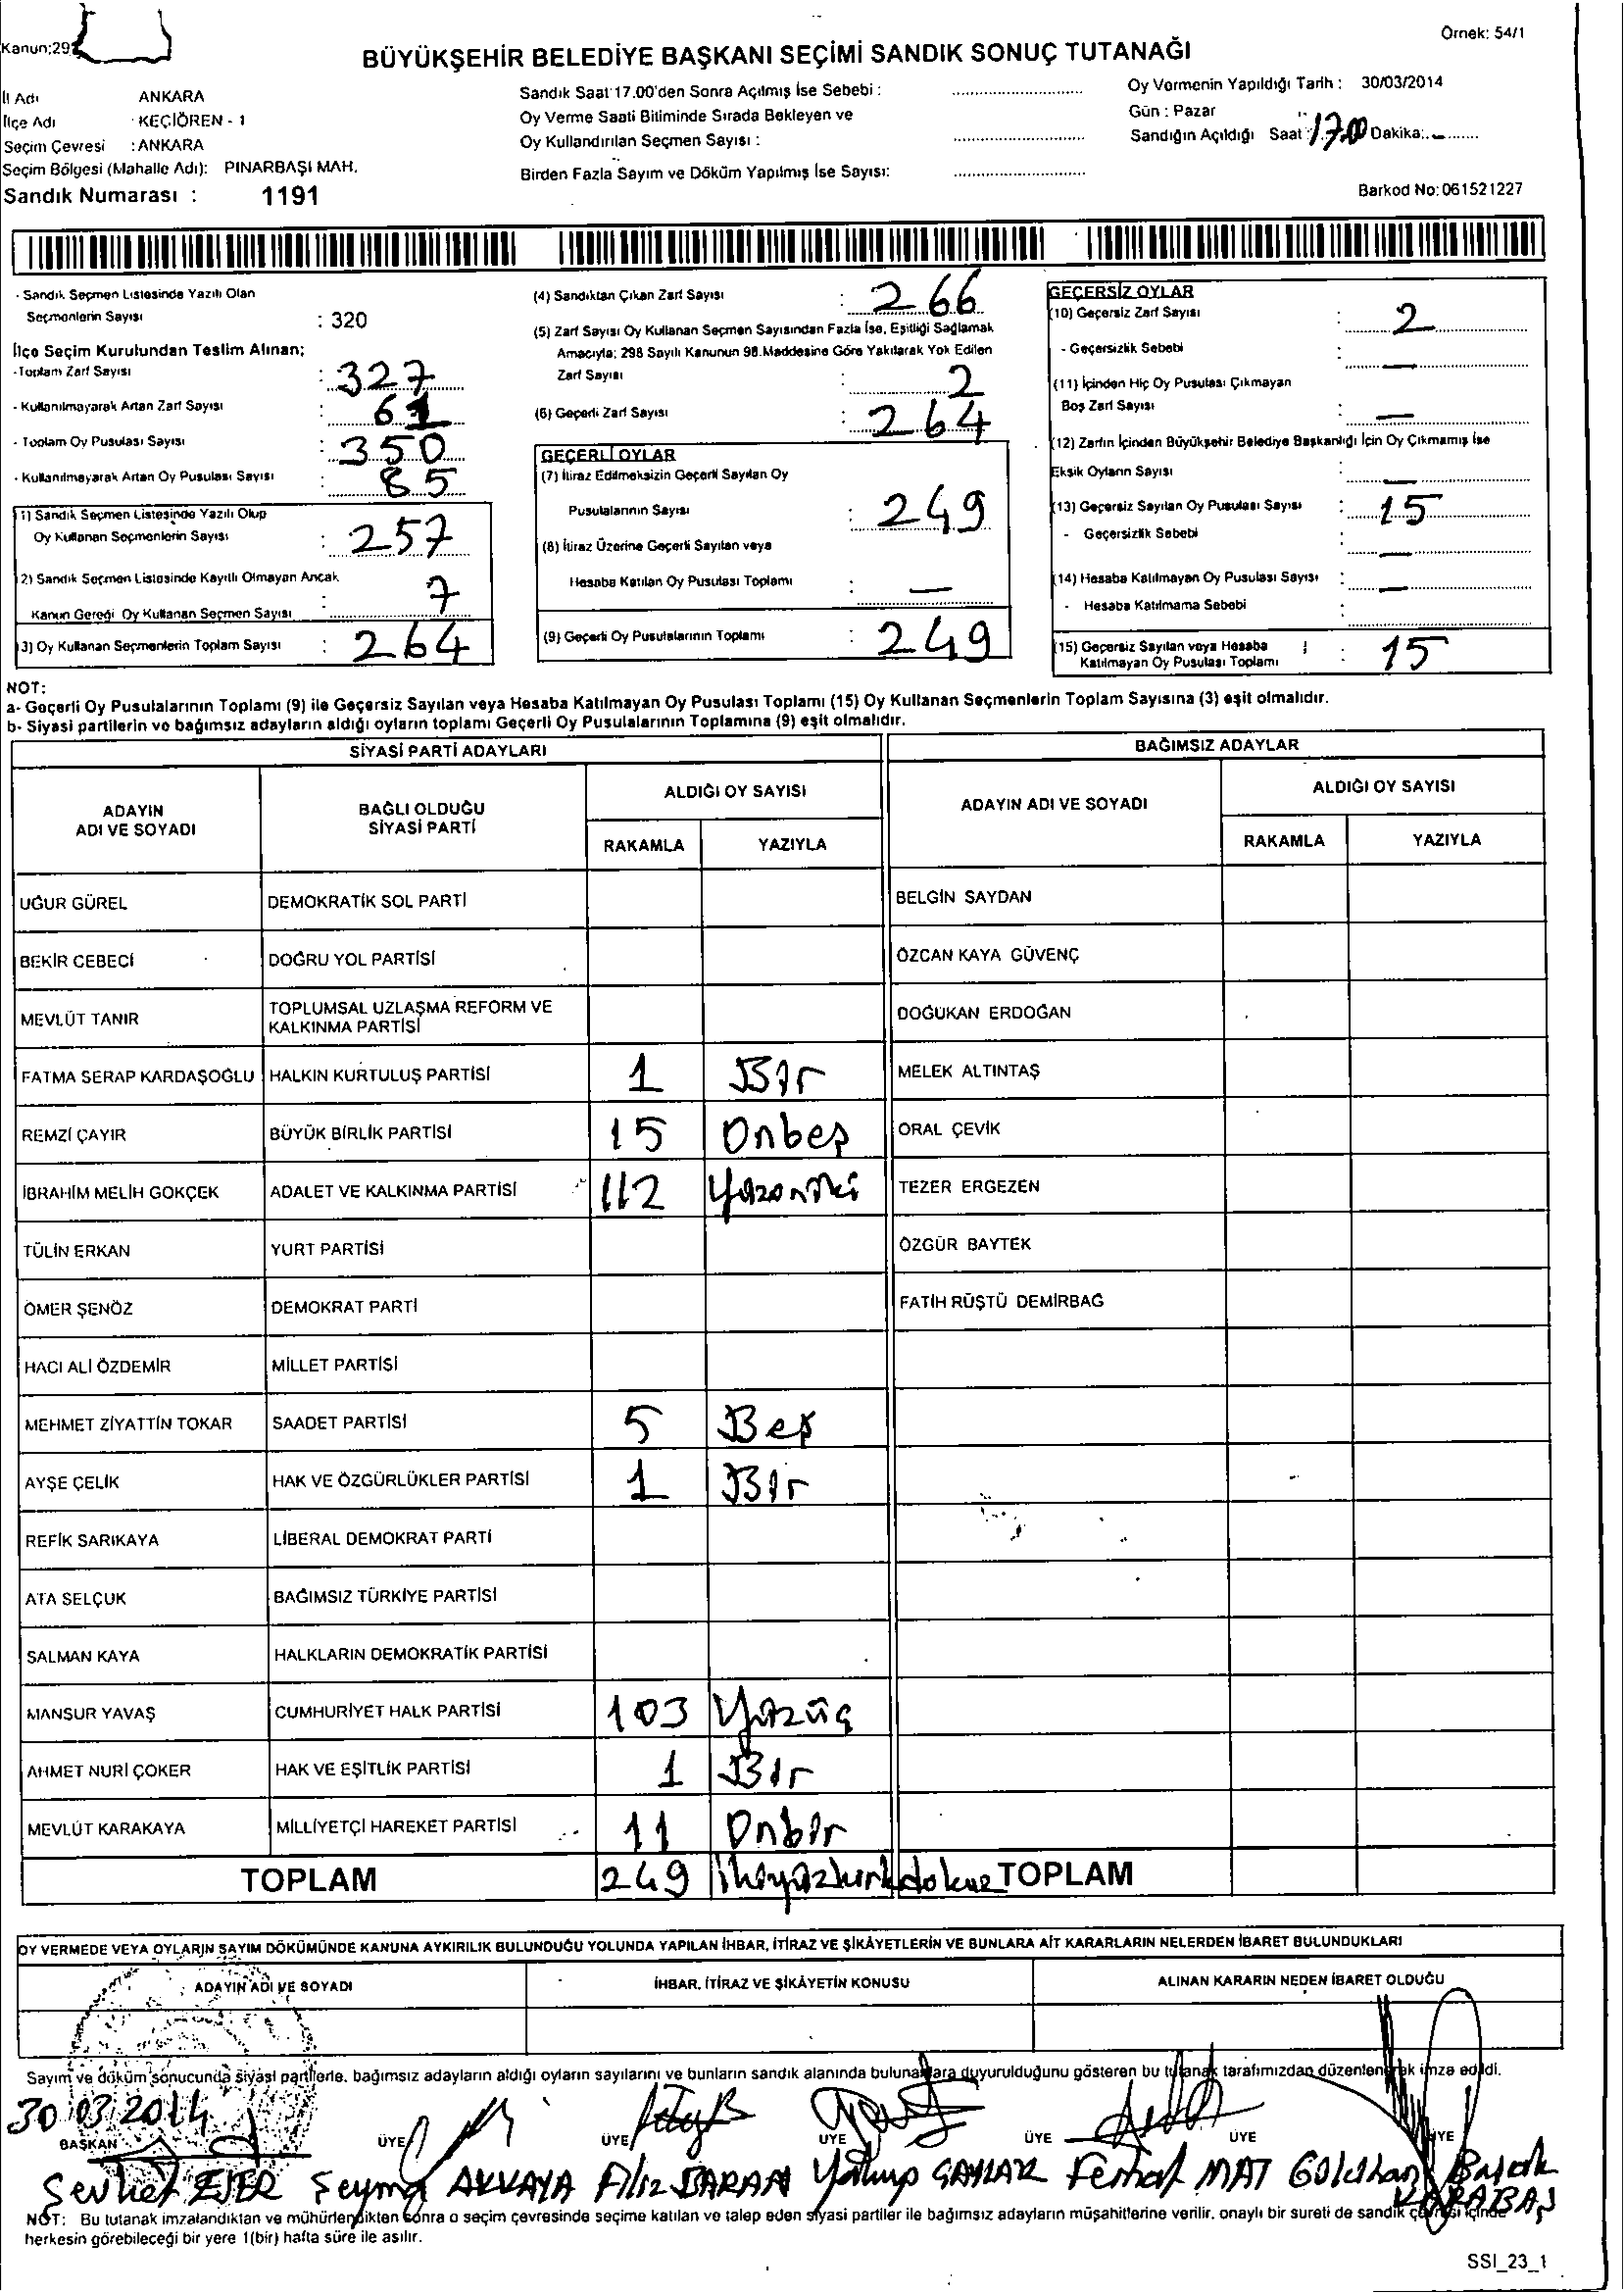 Kanun:29
Örnek: 54/1
BÜYÜKŞEHİR BELEDİYE BAŞKANI SEÇİMİ SANDIK SONUÇ TUTANAĞI
İl Adı ANKARA
İlçe Adı : KEÇİÖREN - 1
Seçim Çevresi : ANKARA
Seçim Bölgesi (Mahalle Adı): PINARBAŞI MAH.
Sandık Numarası : 1191
Sandık Saat 17.00'den Sonra Açılmış İse Sebebi :
Oy Verme Saati Bitiminde Sırada Bekleyen ve
Oy Kullandırılan Seçmen Sayısı :
Birden Fazla Sayım ve Döküm Yapılmış İse Sayısı:
Oy Vermenin Yapıldığı Tarih : 30/03/2014
Gün : Pazar
Sandığın Açıldığı Saat : 17.00 Dakika:
Barkod No: 061521227
- Sandık Seçmen Listesinde Yazılı Olan
Seçmenlerin Sayısı : 320
İlçe Seçim Kurulundan Teslim Alınan;
- Toplam Zarf Sayısı : 327
- Kullanılmayarak Artan Zarf Sayısı : 61
- Toplam Oy Pusulası Sayısı : 350
- Kullanılmayarak Artan Oy Pusulası Sayısı 85
1) Sandık Seçmen Listesinde Yazılı Olup
Oy Kullanan Seçmenlerin Sayısı : 257
2) Sandık Seçmen Listesinde Kayıtlı Olmayan Ancak
Kanun Gereği Oy Kullanan Seçmen Sayısı : 7
3) Oy Kullanan Seçmenlerin Toplam Sayısı : 264
(4) Sandıktan Çıkan Zarf Sayısı : 266
(5) Zarf Sayısı Oy Kullanan Seçmen Sayısından Fazla İse, Eşitliği Sağlamak
Amacıyla; 298 Sayılı Kanunun 98.Maddesine Göre Yakılarak Yok Edilen
Zarf Sayısı : 2
(6) Geçerli Zarf Sayısı : 264
GEÇERLİ OYLAR
(7) İtiraz Edilmeksizin Geçerli Sayılan Oy
Pusulalarının Sayısı : 249
(8) İtiraz Üzerine Geçerli Sayılan veya
Hesaba Katılan Oy Pusulası Toplamı : —
(9) Geçerli Oy Pusulalarının Toplamı : 249
GEÇERSİZ OYLAR
(10) Geçersiz Zarf Sayısı : 2
- Geçersizlik Sebebi : —
(11) İçinden Hiç Oy Pusulası Çıkmayan
Boş Zarf Sayısı : —
(12) Zarfın İçinden Büyükşehir Belediye Başkanlığı İçin Oy Çıkmamış İse
Eksik Oyların Sayısı : —
(13) Geçersiz Sayılan Oy Pusulası Sayısı : 15
- Geçersizlik Sebebi : —
(14) Hesaba Katılmayan Oy Pusulası Sayısı : —
- Hesaba Katılmama Sebebi :
(15) Geçersiz Sayılan veya Hesaba
Katılmayan Oy Pusulası Toplamı : 15
NOT:
a- Geçerli Oy Pusulalarının Toplamı (9) ile Geçersiz Sayılan veya Hesaba Katılmayan Oy Pusulası Toplamı (15) Oy Kullanan Seçmenlerin Toplam Sayısına (3) eşit olmalıdır.
b- Siyasi partilerin ve bağımsız adayların aldığı oyların toplamı Geçerli Oy Pusulalarının Toplamına (9) eşit olmalıdır.
SİYASİ PARTİ ADAYLARI BAĞIMSIZ ADAYLAR
ADAYIN ADI VE SOYADI BAĞLI OLDUĞU SİYASİ PARTİ ALDIĞI OY SAYISI ADAYIN ADI VE SOYADI ALDIĞI OY SAYISI
RAKAMLA YAZIYLA RAKAMLA YAZIYLA
UĞUR GÜREL DEMOKRATİK SOL PARTİ BELGİN SAYDAN
BEKİR CEBECİ DOĞRU YOL PARTİSİ ÖZCAN KAYA GÜVENÇ
MEVLÜT TANIR TOPLUMSAL UZLAŞMA REFORM VE KALKINMA PARTİSİ DOĞUKAN ERDOĞAN
FATMA SERAP KARDAŞOĞLU HALKIN KURTULUŞ PARTİSİ 1 Bir MELEK ALTINTAŞ
REMZİ ÇAYIR BÜYÜK BİRLİK PARTİSİ 15 Onbeş ORAL ÇEVİK
İBRAHİM MELİH GÖKÇEK ADALET VE KALKINMA PARTİSİ 112 Yüzoniki TEZER ERGEZEN
TÜLİN ERKAN YURT PARTİSİ ÖZGÜR BAYTEK
ÖMER ŞENÖZ DEMOKRAT PARTİ FATİH RÜŞTÜ DEMİRBAĞ
HACI ALİ ÖZDEMİR MİLLET PARTİSİ
MEHMET ZİYATTİN TOKAR SAADET PARTİSİ 5 Beş
AYŞE ÇELİK HAK VE ÖZGÜRLÜKLER PARTİSİ 1 Bir
REFİK SARIKAYA LİBERAL DEMOKRAT PARTİ
ATA SELÇUK BAĞIMSIZ TÜRKİYE PARTİSİ
SALMAN KAYA HALKLARIN DEMOKRATİK PARTİSİ
MANSUR YAVAŞ CUMHURİYET HALK PARTİSİ 103 Yüzüç
AHMET NURİ ÇOKER HAK VE EŞİTLİK PARTİSİ 1 Bir
MEVLÜT KARAKAYA MİLLİYETÇİ HAREKET PARTİSİ 11 Onbir
TOPLAM 249 ikiyüzkırkdokuz TOPLAM
OY VERMEDE VEYA OYLARIN SAYIM DÖKÜMÜNDE KANUNA AYKIRILIK BULUNDUĞU YOLUNDA YAPILAN İHBAR, İTİRAZ VE ŞİKÂYETLERİN VE BUNLARA AİT KARARLARIN NELERDEN İBARET BULUNDUKLARI
ADAYIN ADI VE SOYADI İHBAR, İTİRAZ VE ŞİKÂYETİN KONUSU ALINAN KARARIN NEDEN İBARET OLDUĞU
Sayım ve döküm sonucunda siyasi partilerle, bağımsız adayların aldığı oyların sayılarını ve bunların sandık alanında bulunanlara duyurulduğunu gösteren bu tutanak tarafımızdan düzenlenerek imza edildi.
30.03.2014
BAŞKAN ÜYE ÜYE ÜYE ÜYE ÜYE ÜYE
Şevket Şeyma AKKAYA Filiz BARAN Yakup Ferhat MAT Gökhan Başak KARABAŞ
NOT: Bu tutanak imzalandıktan ve mühürlendikten sonra o seçim çevresinde seçime katılan ve talep eden siyasi partiler ile bağımsız adayların müşahitlerine verilir. onaylı bir sureti de sandık çevresi içinde
herkesin görebileceği bir yere 1(bir) hafta süre ile asılır.
SSI_23_1